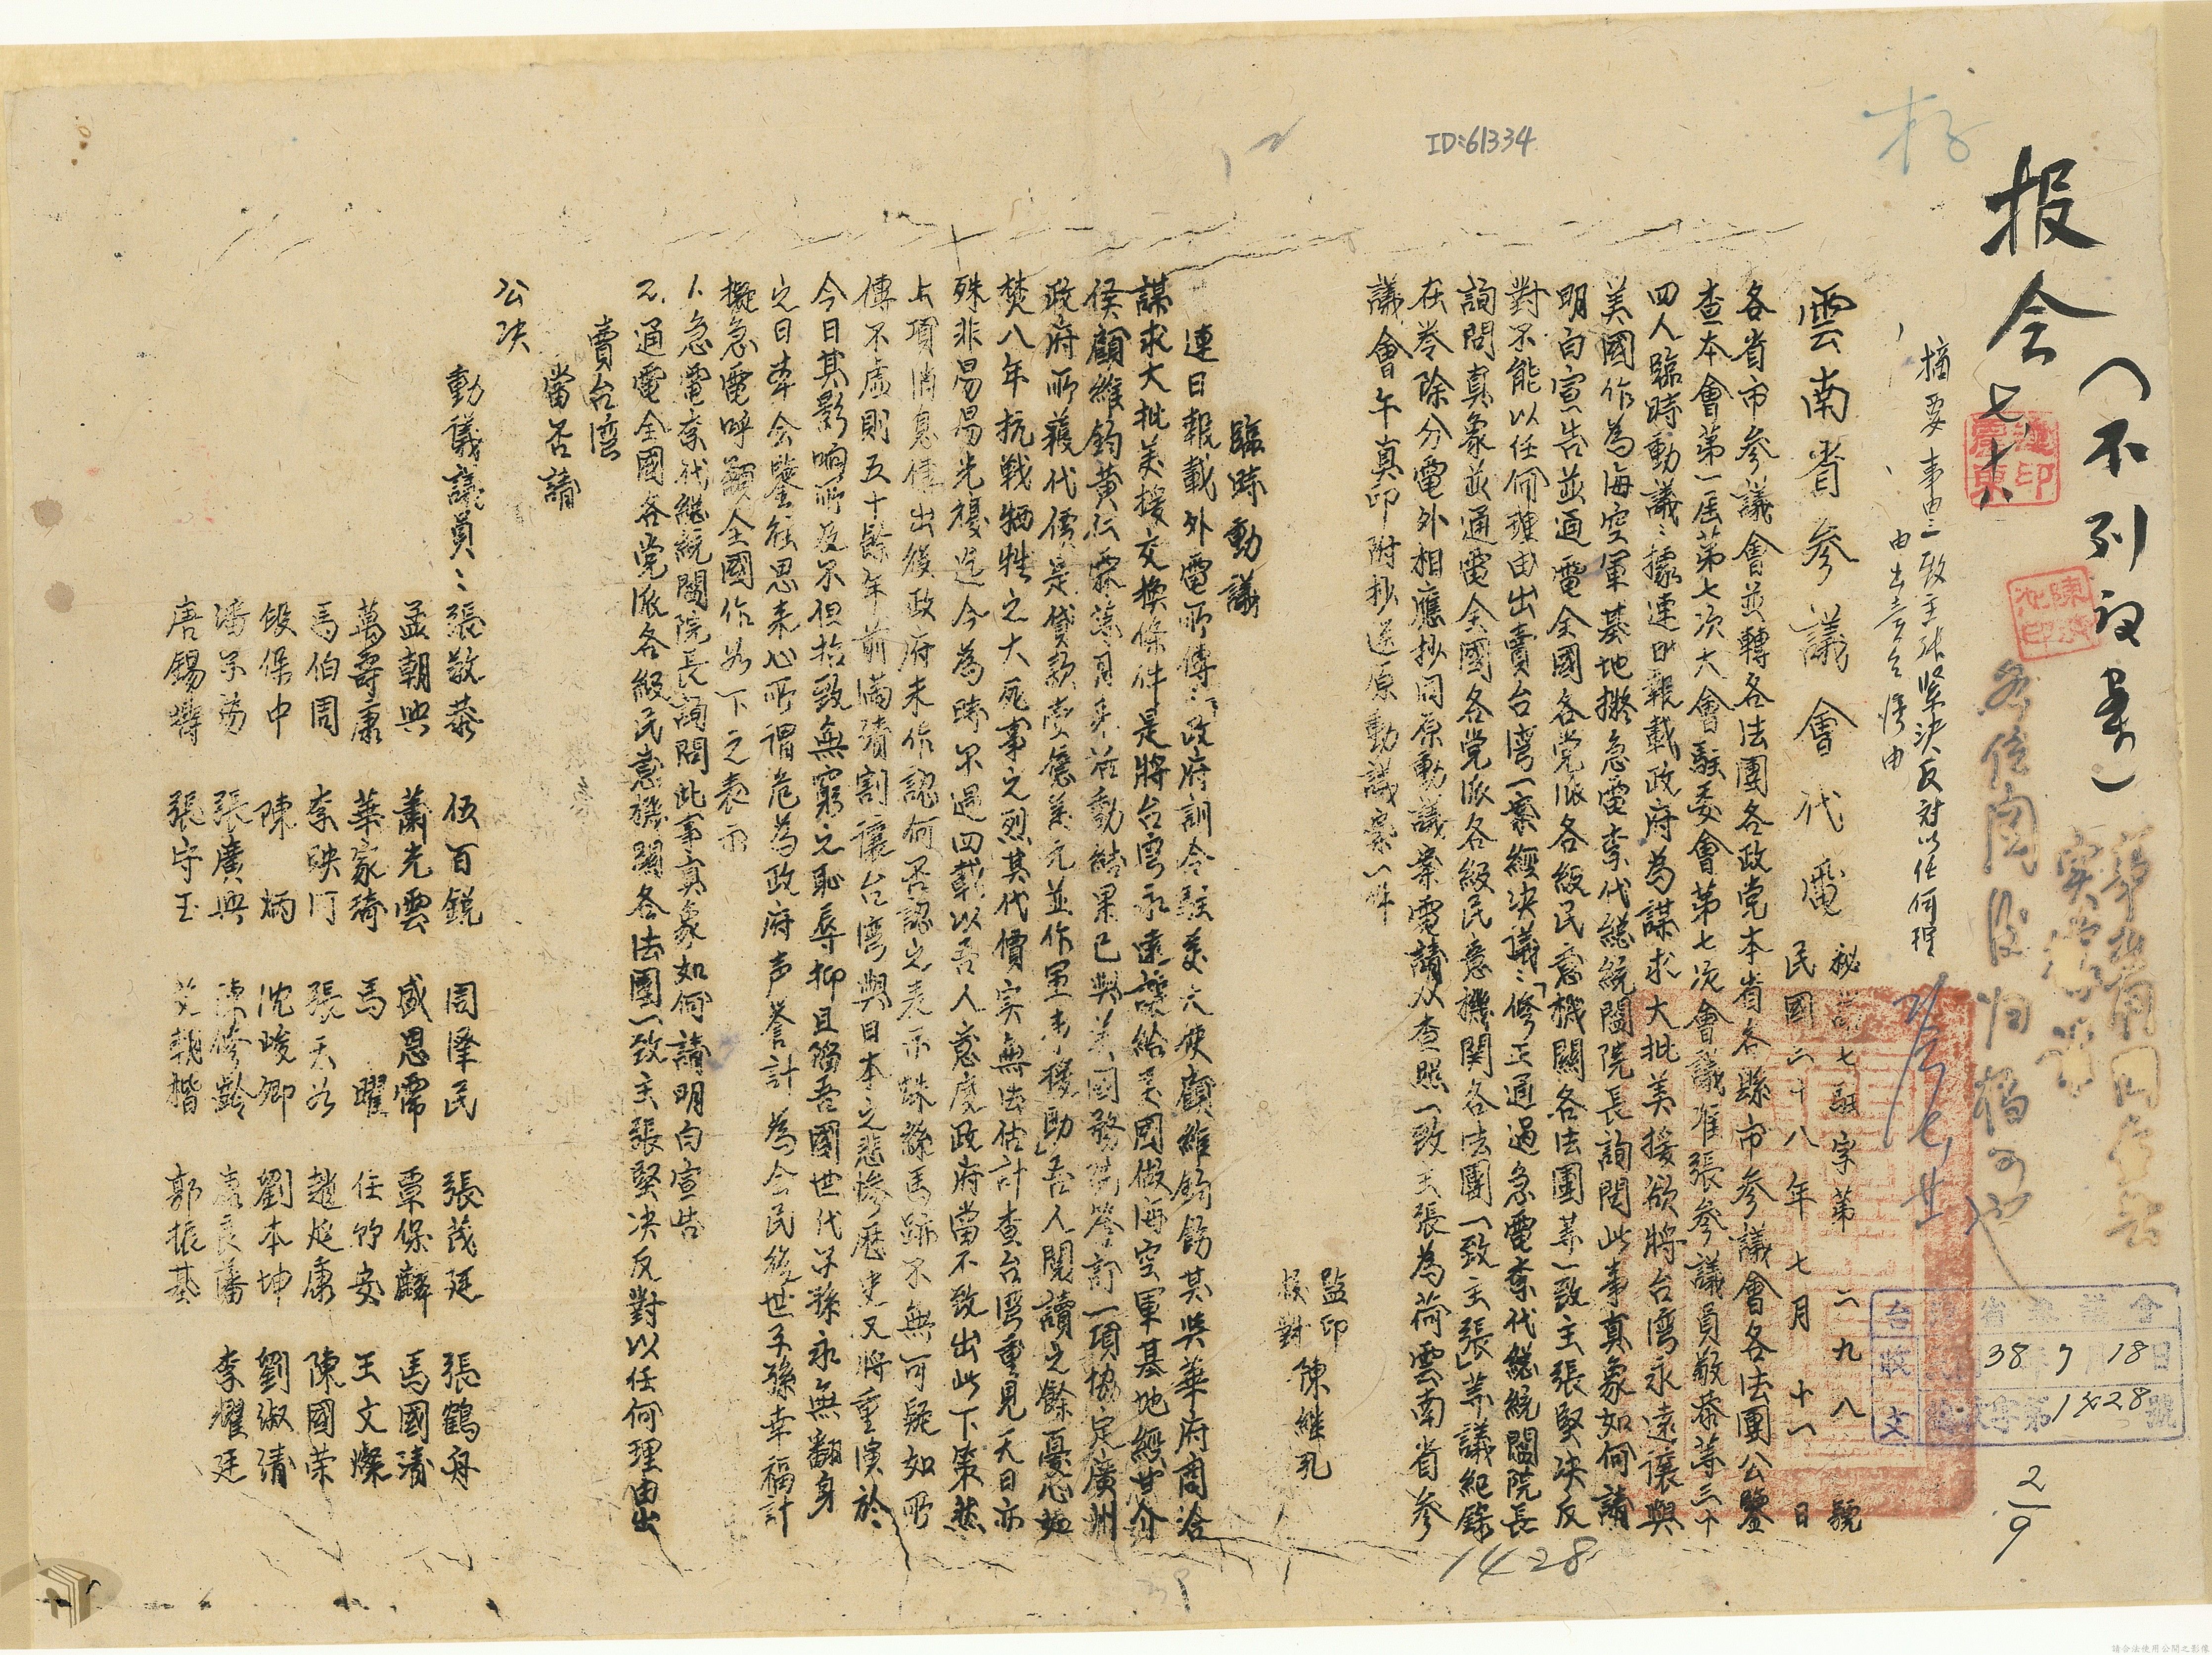 ID:61334
存
报会
（不列议案）
七、十八
摘要 事由：一致主張堅決反对以任何理
由出賣台灣由
雲南省參議會代電
秘 字第二九八號
民國三十八年七月十一日
各省市參議會並轉各法團各政党本省各縣市參議會各法團公鑒
查本會第一屆第七次大會駐委會第七次會議准張參議員敬泰等三十
四人臨時動議：據連日報載政府為謀求大批美援欲將台湾永遠讓與
美國作為海空軍基地擬急電李代総統閻院長詢問此事真象如何請
明白宣告並通電全國各党派各級民意機關各法團等一致主張堅決反
對不能以任何理由出賣台湾一案經決議：「修正通過急電李代総統閻院長
詢問真象並通電全國各党派各級民意機関各法團一致主張」等議紀錄
在卷除分電外相應抄同原動議案電請 查照一致主張為荷雲南省參
議會午真印附抄送原動議案一件
監印
校對 陳継孔
臨時動議
連日報載外電所傳：「政府訓令駐美大使顧維鈞飭其與華府商洽
謀求大批美援交換條件是將台湾永遠讓給美國做海空軍基地經甘介
侯顧維鈞黃仁霖 月來活動結果已與美國務院簽訂一項協定廣州
政府所獲代價是貸款壹億美元並作軍事援助」吾人閱讀之餘憂心如
焚八年抗戰牺牲之大死事之烈其代價実無法估計查台湾重見天日亦
殊非易易光復迄今為時不過四載以吾人意度政府當不致出此下策然
上項消息傳出後政府未作認何否認之表示蛛絲馬跡不無可疑如所
傳不虛則五十餘年前滿清割讓台湾與日本之悲慘歷史又將重演於
今日其影响所及不但招致無窮之恥辱抑且陷吾國世代子孫永無翻身
之日本会鑒往思来心所謂危為政府声誉計為全民後世子孫幸福計
擬急電呼籲全國作如下之表示
1、急電李代総統閻院長詢問此事真象如何請明白宣告
2、通電全國各党派各級民意機關各法團一致主張堅決反對以任何理由出
賣台湾
當否請
公決
動議議員：張敬泰 伍百銳 周澤民 張茂廷 張鶴舟
孟朝興 蕭光雲 盛恩霈 覃保麟 馬國清
萬壽康 華家琦 馬 曜 任竹安 王文燦
馬伯周 李映門 張天放 趙延康 陳國榮
段保中 陳 炳 沈峻卿 劉本坤 劉淑清
潘 張廣興 陳修齡 良藩 李耀廷
唐錫 張守玉 朝楷 郭振基
台灣省參議會
收文
38 7 18日
字第1428號
2/9
1428
請合法使用公開之影像